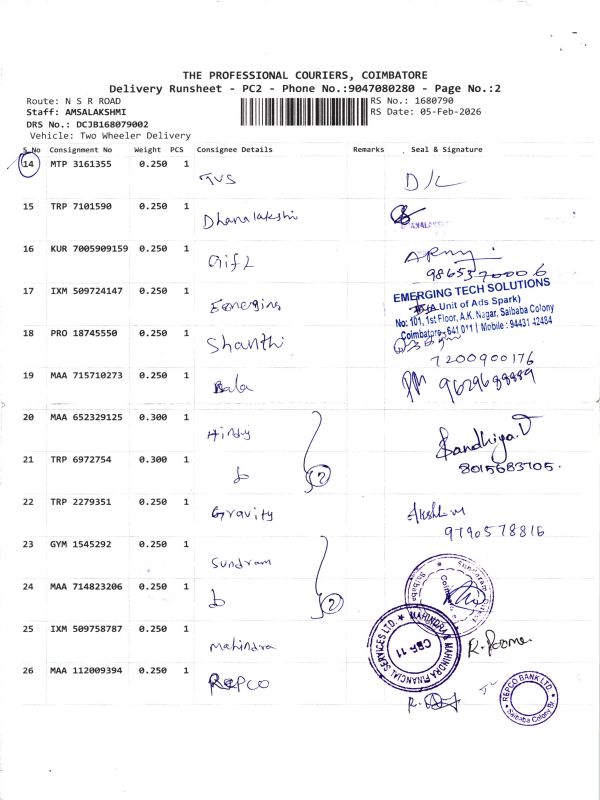 THE PROFESSIONAL COURIERS, COIMBATORE
Delivery Runsheet - PC2 - Phone No.:9047080280 - Page No.:2
Route: N S R ROAD
RS No.: 1680790
Staff: AMSALAKSHMI
RS Date: 05-Feb-2026
DRS No.: DCJB168079002
Vehicle: Two Wheeler Delivery
S.No Consignment No Weight PCS Consignee Details Remarks Seal & Signature
14 MTP 3161355 0.250 1 TVS D/L
15 TRP 7101590 0.250 1 Dhanalakshi
16 KUR 7005909159 0.250 1 Gift Army
17 IXM 509724147 0.250 1 Emerging
EMERGING TECH SOLUTIONS
(A Unit of Ads Spark)
No: 101, 1st Floor, A.K. Nagar, Saibaba Colony
Coimbatore - 641 011 | Mobile : 94431 42484
18 PRO 18745550 0.250 1 Shanthi
7200900176
19 MAA 715710273 0.250 1 Bala
20 MAA 652329125 0.300 1 Hindy Sandhiya.V
21 TRP 6972754 0.300 1 2 8015683705.
22 TRP 2279351 0.250 1 Gravity
9790578816
23 GYM 1545292 0.250 1 Sundram
24 MAA 714823206 0.250 1 2
25 IXM 509758787 0.250 1 Mahindra
MAHINDRA & MAHINDRA FINANCIAL SERVICES LTD.
CBE-11
26 MAA 112009394 0.250 1 REPCO
REPCO BANK LTD
Saibaba Colony Br.